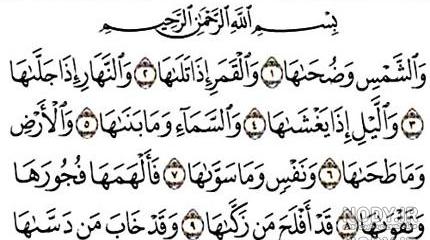 بِسْمِ اللَّهِ الرَّحْمَٰنِ الرَّحِيمِ
وَالشَّمْسِ وَضُحَاهَا ١ وَالْقَمَرِ إِذَا تَلَاهَا ٢ وَالنَّهَارِ إِذَا جَلَّاهَا
٣ وَاللَّيْلِ إِذَا يَغْشَاهَا ٤ وَالسَّمَاءِ وَمَا بَنَاهَا ٥ وَالْأَرْضِ
وَمَا طَحَاهَا ٦ وَنَفْسٍ وَمَا سَوَّاهَا ٧ فَأَلْهَمَهَا فُجُورَهَا
وَتَقْوَاهَا ٨ قَدْ أَفْلَحَ مَن زَكَّاهَا ٩ وَقَدْ خَابَ مَن دَسَّاهَا